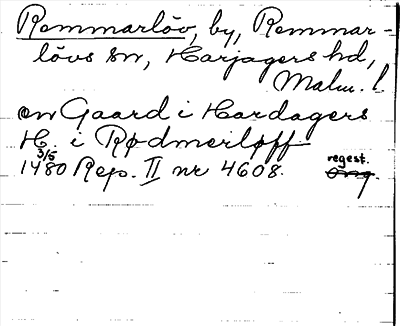 Remmarlöv, by, Remmar-
lövs sn, Harjagers hd,
Malm. l
en Gaard i Hardagers
H. i Rødmerløff
3/5
1480 Rep. II nr 4608. regest.